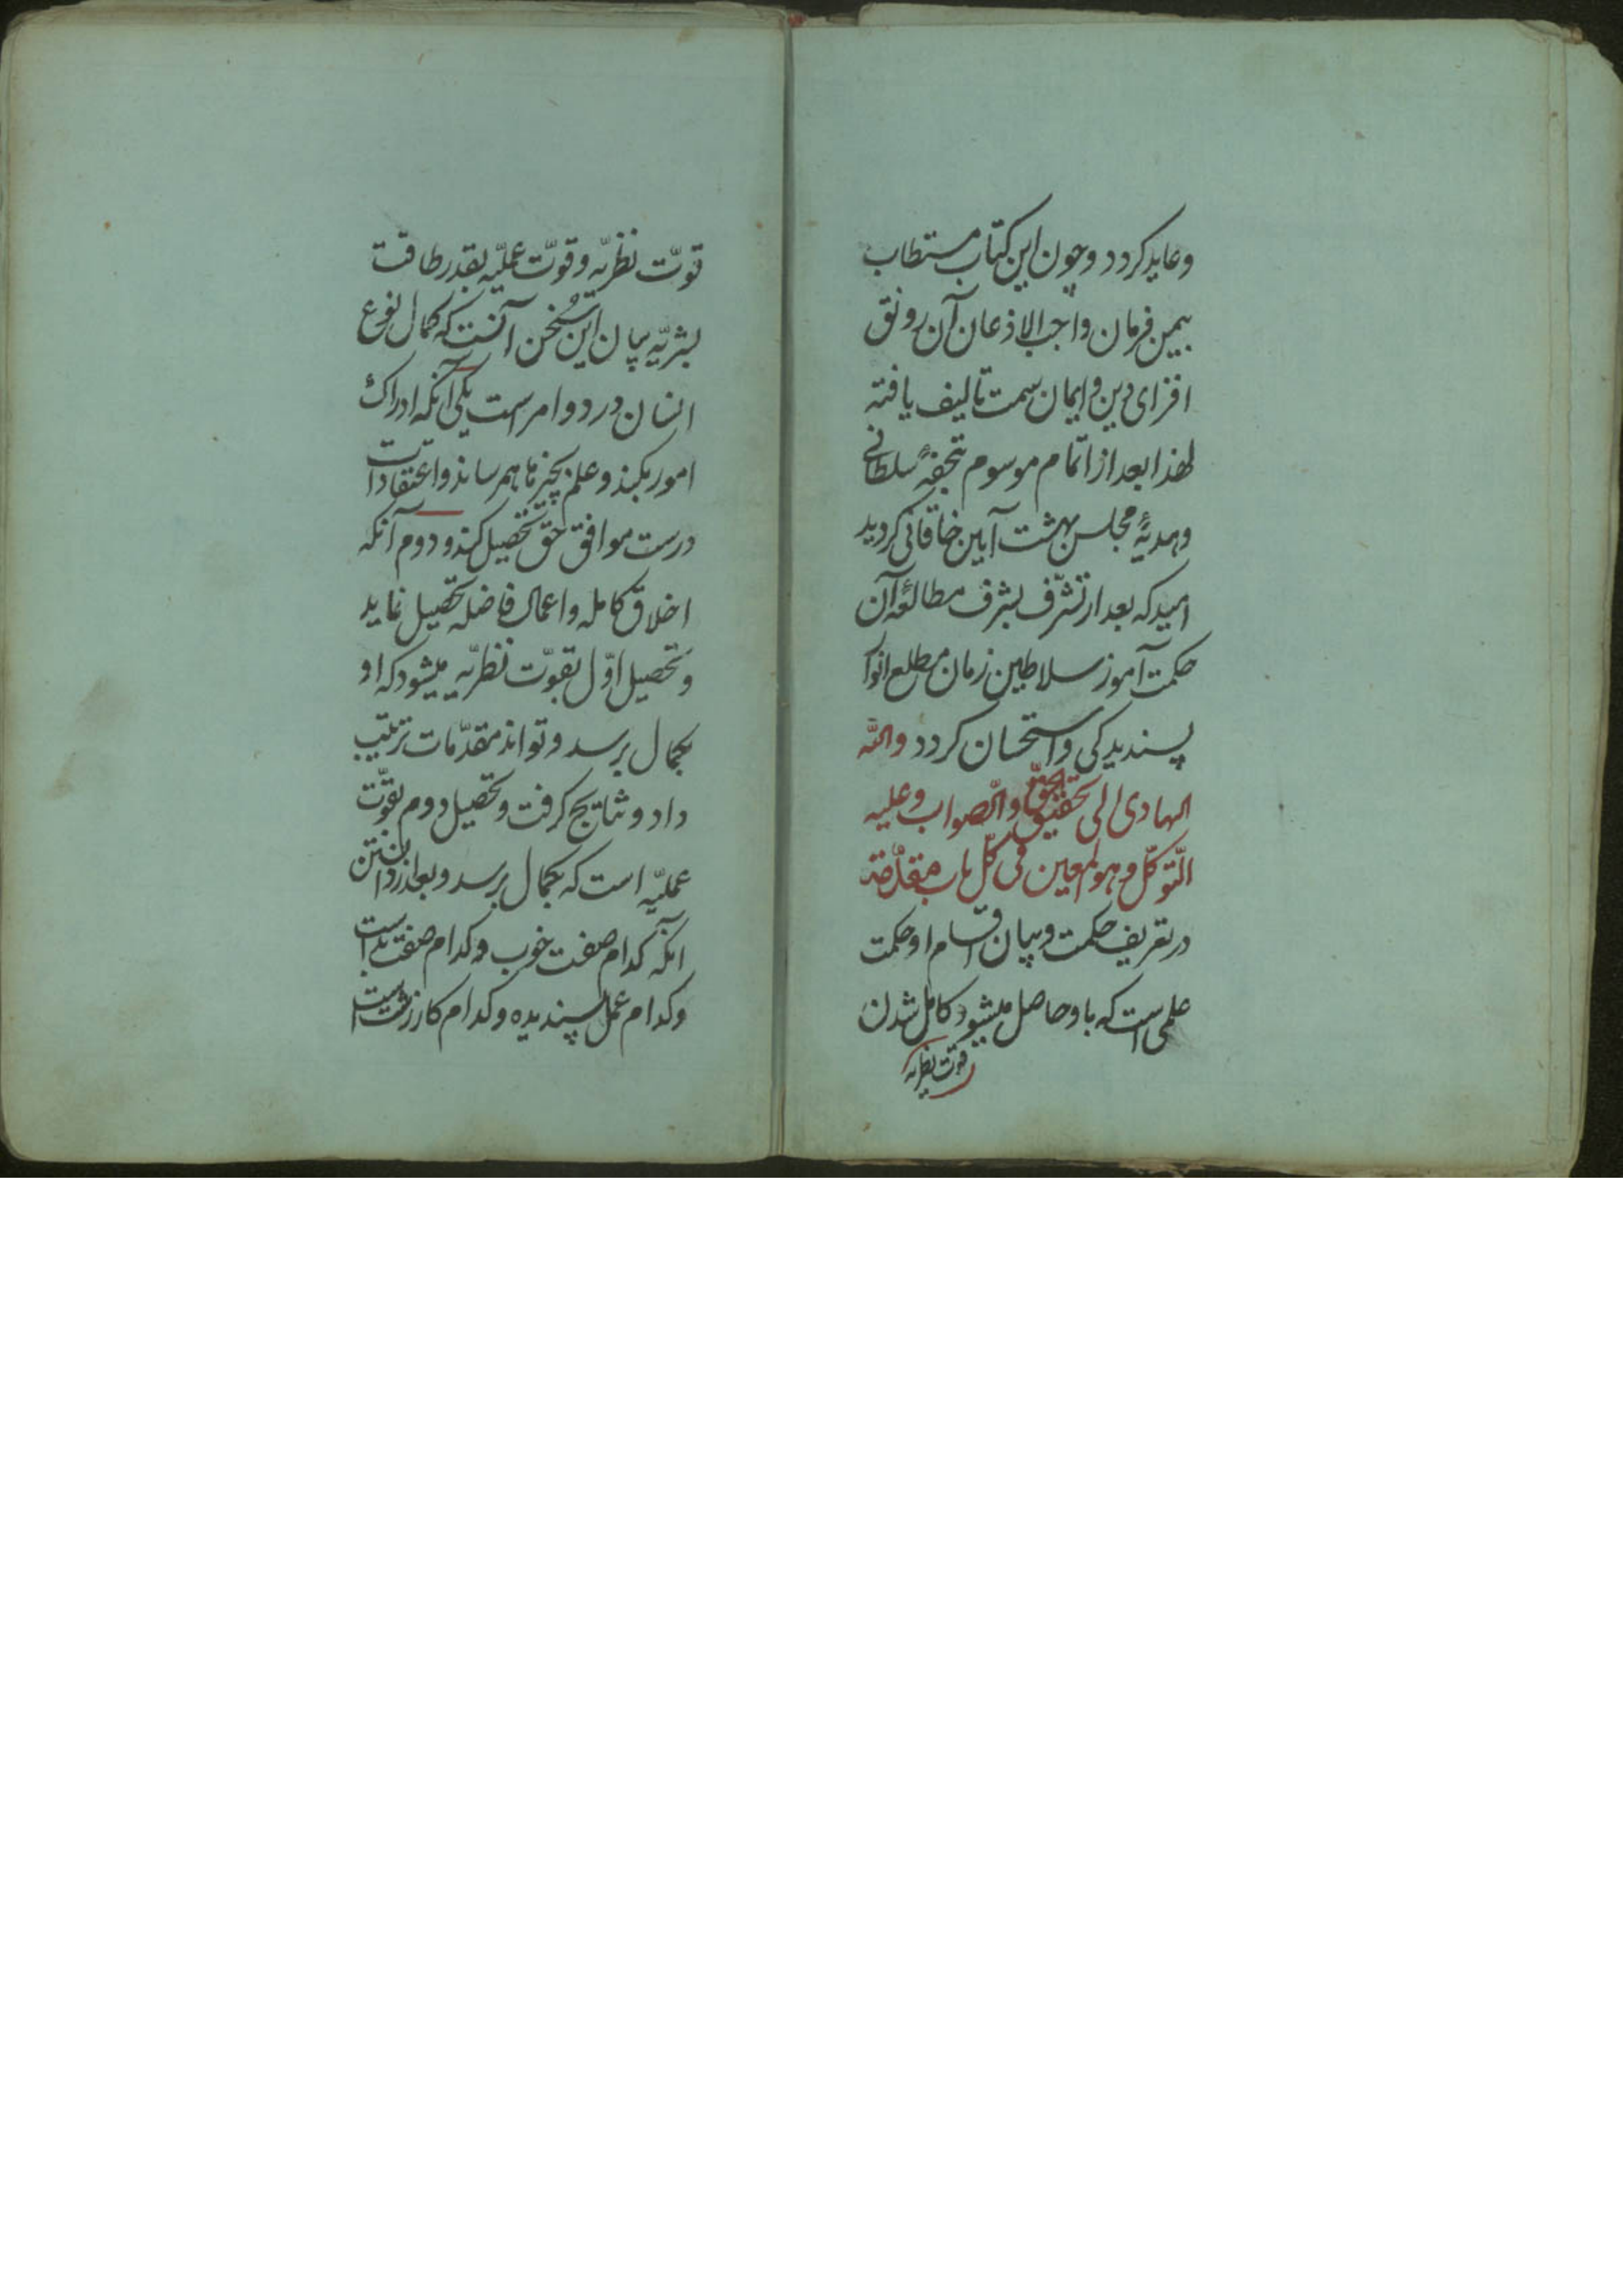 وعاید کردد وچون این کتاب مستطاب
بیمن فرمان واجب الاذعان آن رونق
افزای دین وایمان سمت تالیف یافته
لهذا بعد از اتمام موسوم بتحفهٔ سلطانی
وهدیهٔ مجلس بهشت آیین خاقانی کردید
امید که بعد از تشرّف بشرف مطالعهٔ آن
حکمت آموز سلاطین زمان مطلع انوار
پسندیدکی واستحسان کردد والله
الهادی الی تحقیق الحقّ والصّواب وعلیه
التّوکّل وهو المعین فی کلّ باب مقدّمة
در تعریف حکمت وبیان اقسام او حکمت
علمی است که باو حاصل میشود کامل شدن
قوت نظریه
قوّت نظریّه وقوّت عملیّه بقدر طاقت
بشریّه بیان این سُخن آنست که کمال نوع
انسان در دو امر است یکی آنکه ادراک
امور بکند وعلم بچیزها بهم رساند واعتقادات
درست موافق حقّ تحصیل کند ودوم آنکه
اخلاق کامله واعمال فاضله تحصیل نماید
وتحصیل اوّل بقوّت نظریّه میشود که او
بکمال برسد وتواند مقدّمات ترتیب
داد ونتایج کرفت وتحصیل دوم بقوّت
عملیّه است که بکمال برسد وبعد از دانستن
آنکه کدام صفت خوب وکدام صفت بد است
وکدام عمل پسندیده وکدام کار زشت است